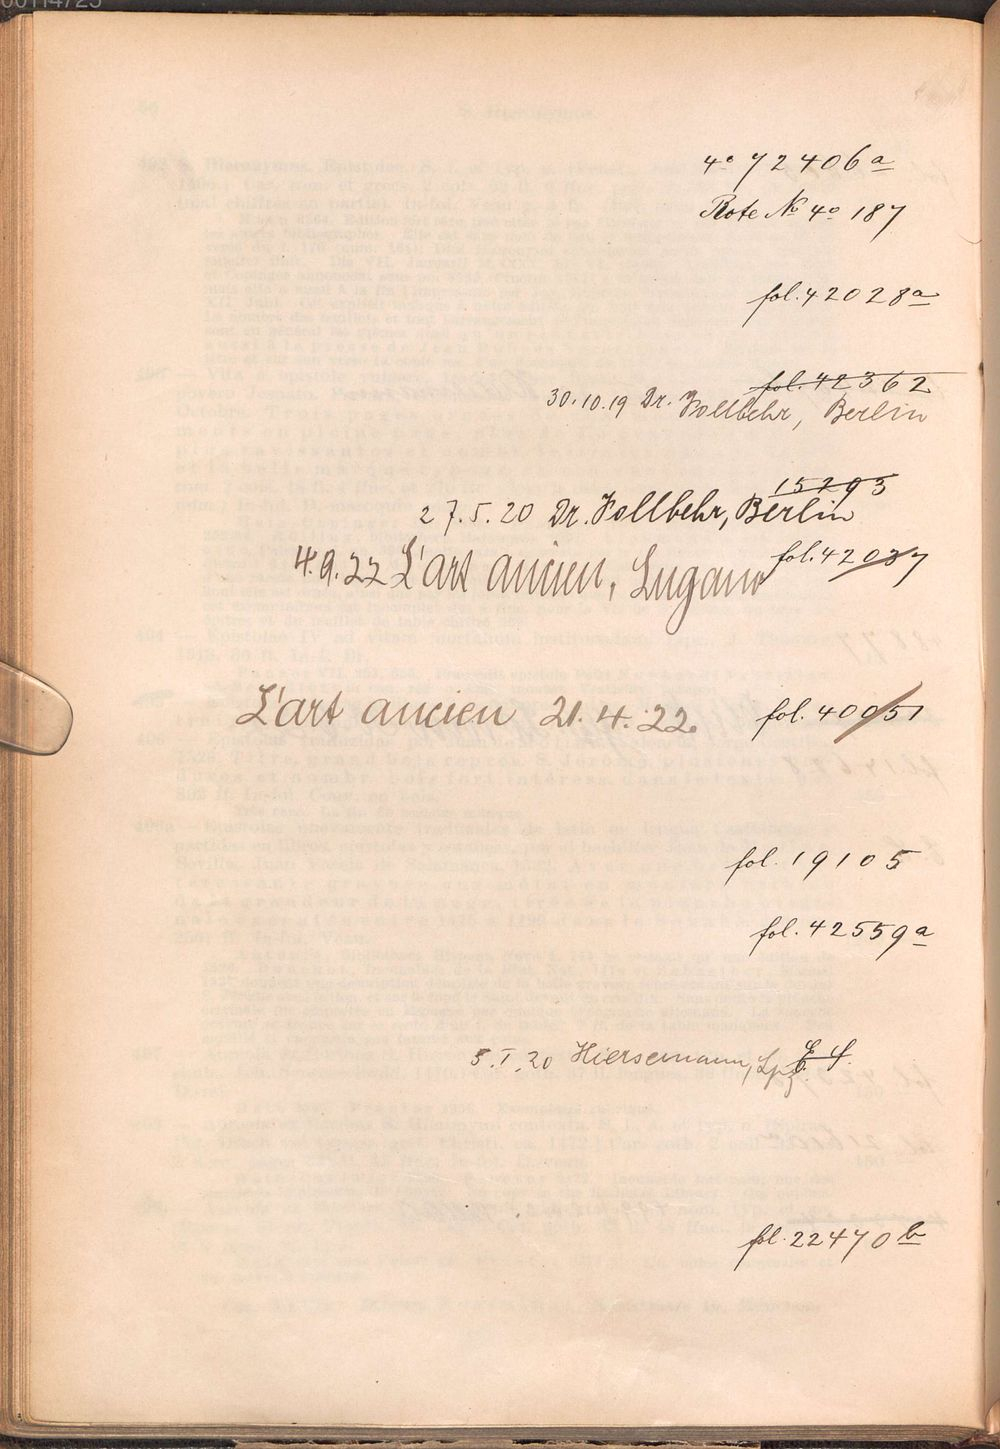 00114725
4º 72406a
Rote Nº 4º 187
fol. 42028a
fol. 42362
30.10.19 Dr. Vollbehr, Berlin
15293
27.5.20 Dr. Vollbehr, Berlin
fol. 42037
4.9.22 L'art ancien, Lugano
L'art ancien 21.4.22. fol. 40051
fol. 19105
fol. 42559a
5.I.20 Hiersemann, Lpz.
fol. 22470b